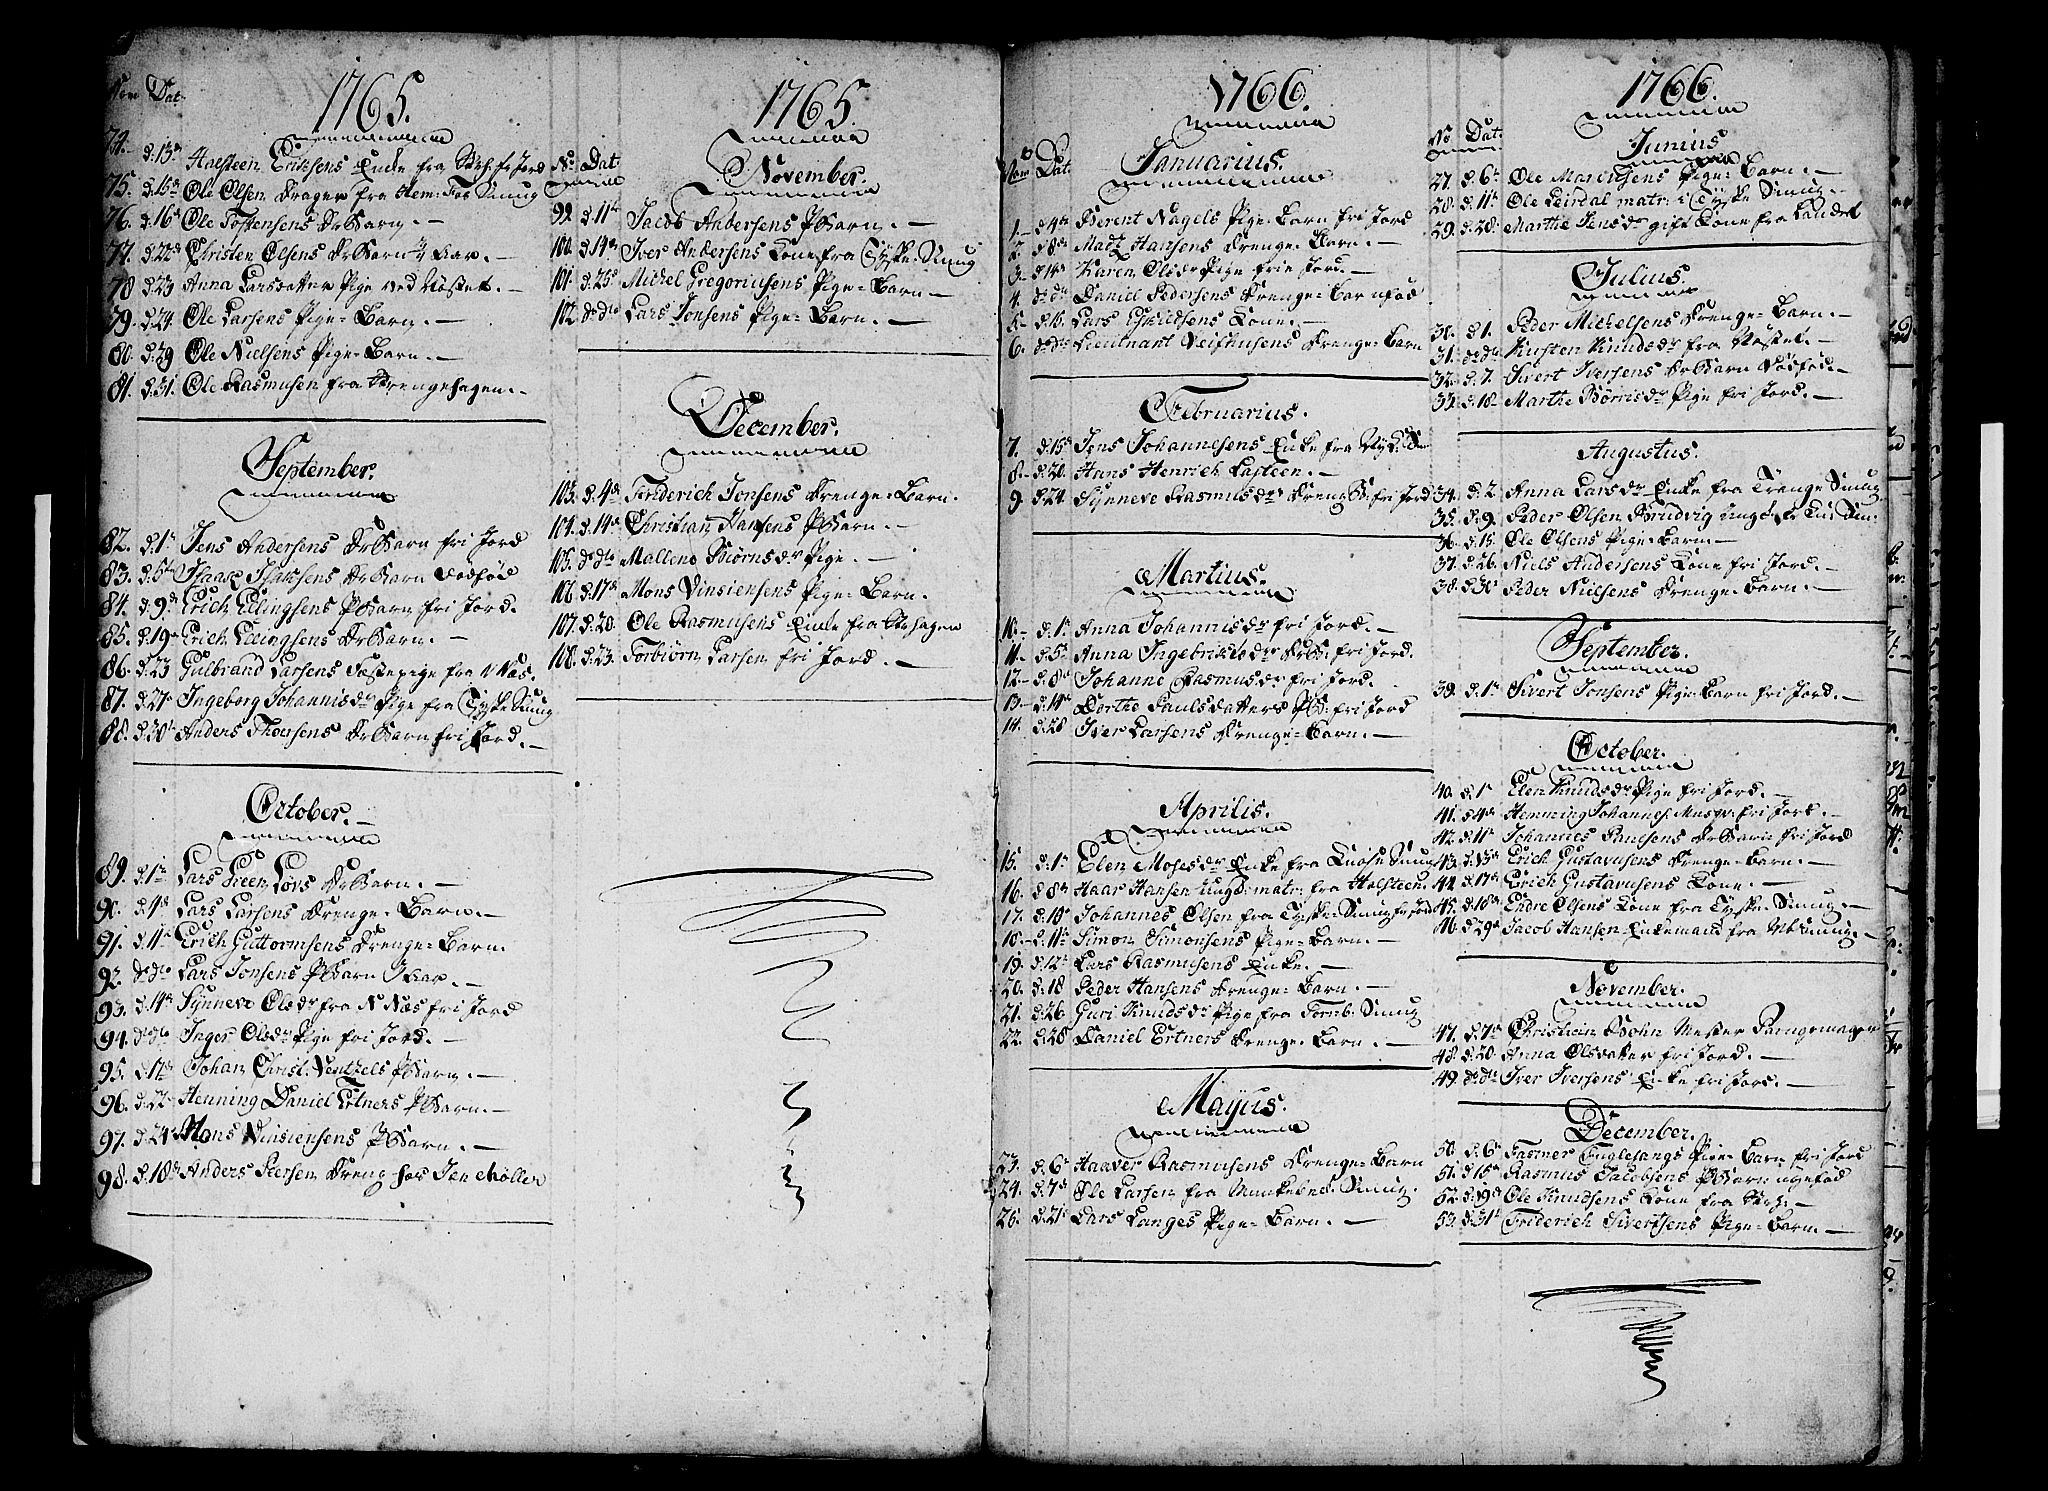 Dat.
1765.
74. d. 13de Halsteen Erichsens Enke fra fri Jord
75. d. 15de Ole Olsen Drager fra Smug
76. d. 16de Ole Tostensens Dr Barn. —
77. d. 22de Christen Olsens Dr Barn. —
78 d. 23 Anna Larsdatter Pige ved Nøstet. —
79. d. 24. Ole Larsens Pige-Barn. —
80. d. 29 Ole Nielsens Pige-Barn. —
81. d. 31. Ole Rasmusen fra Strengehagen. —
September.
82. d. 1te Jens Andersens Dr Barn fri Jord
83. d. 5te Isaak Isaksens Dr Barn Dødfød
84. d. 9de Erich Ellingsens P Barn fri Jord.
85. d. 19de Erich Ellingsens Dr Barn. —
86. d. 23 Gulbrand Larsens Fostepige fra
87. d. 27de Ingeborg Johannisdr Pige fra Tydske Smug
88. d. 30te Anders Thoesens Dr Barn fri Jord. —
October. —
89. d. 1te Lars Dr Barn. —
90. d. 4de Lars Larsens Drenge-Barn. —
91. d. 11te Erich Guttormsens Drenge-Barn.
92. do do Lars Jonsens P Barn —
93. d. 14de Synneve Olsdr fra N Næs fri Jord
94. do do Inger Olsdr Pige fri Jord. —
95. d. 17de Johan Christ. Ventzels P Barn. —
96. d. 22de Henning Daniel Ertners P Barn. —
97. d. 24de Mons Vinsiensens P Barn. —
98. d. 18de Anders Persen Dreng hos Møller
1765.
No. Dat.
November.
99. d. 11te Jacob Andersens P Barn. —
100. d. 14de Iver Andersens Kone fra Tydske Smug
101. d. 25de Michel Gregoriusens Pige-Barn —
102. do do Lars Jonsens Pige-Barn. —
December.
103. d. 4de Friderich Jonsens Drenge-Barn.
104. d. 14de Christian Hansens P Barn. —
105. do do Mallene Biørnsdr Pige. —
106 d. 17de Mons Vinsiensens Pige-Barn.
107. d. 20. Ole Rasmusens Enke fra
108. d. 23. Torbiørn Larsen fri Jord. —
1766.
Dat.
Januarius.
1. — d 4de Berent Nagels Pige-Barn fri Jord
2. d 8de Madz Hansens Drenge-Barn. —
3. d 14de Karen Olsdr Pige frie Jord. —
4. do do Daniel Pedersens Drenge-Barn
5. d. 16. Lars Eskildsens Kone. —
6. do do Lieutnant Drenge-Barn
Februarius.
7. d. 15de Jens Johannesens Enke fra
8. — d. 20. Hans Henrich —
9 d 24. Synneve Rasmusdrs Dreng B: fri Jord
Martius.
10. — d. 1te Anna Johannisdr fri Jord. —
11. — d. 5te Anna Ingebrikdrs Dr B: fri Jord.
12. — d. 8de Johanne Rasmusdr fri Jord.
13. — d. 14de Dorthe Paulsdatters P B: fri Jord
14. d. 28 Iver Larsens Drenge-Barn. —
Aprilis.
15. d. 1te Elen Mosesdr Enke fra Smug
16. d 8de Haar Hansen ung matr: fra Holsteen. —
17. d. 10de Johannes Olsen fra Tyske Smug fr Jord
18. — d. 11te Simon Simonsens Pige-Barn. —
19. d. 12te Lars Rasmusens Enke. —
20. d. 18 Peder Hansens Drenge-Barn. —
21. d. 26. Guri Knudsdr Pige fra Smug
22. d. 28 Daniel Ertners Drenge-Barn. —
Mayus.
23. d. 6te Haaver Rasmusens Drenge-Barn
24. d. 7de Ole Larsen fra Munkebek Smug.
26. d. 21de Lars Langes Pige-Barn. —
1766.
No Dat:
Junius
27. d. 6te Ole Martensens Pige-Barn. —
28. d. 11te Ole Leirdal matr: i Tyske Smug. —
29. d. 28: Marthe Jensdr gift Kone fra Landet
Julius.
30. d. 1. Peder Michelsens Drenge-Barn. —
31. do do Kirsten Knudsdr fra Nøstet. —
32. d. 7. Sivert Iversens Dr Barn Dødfød. —
33. d. 18. Marthe Børrisdr Pige fri Jord. —
Augustus.
34. d. 2. Anna Larsdr Enke fra Trenge Smug
35. d. 9. Peder Olsen Brudvig
36. d. 15. Ole Olsens Pige-Barn. —
37. d. 26. Niels Andersens Kone fri Jord. —
38. d. 30te Peder Nielsens Drenge-Barn. —
September.
39. d. 1te Sivert Jonsens Pige-Barn fri Jord. —
October.
40. d. 1te Elen Knudsdr Pige fri Jord. —
41. d 4de Hemming Johannes fri Jord. —
42. d. 11te Johannes Paulsens Dr Barn fri Jord
43. d. 13de Erich Gustavusens Drenge-Barn. —
44. d. 17de Erich Gustavusens Kone. —
45. d. 18de Endre Olsens Kone fra Tyske-Smug. —
46. d 29de Jacob Hansen Enkemand fra —
November.
47. d. 7de Christian Bohn Mester Parugemager
48. d. 20. Anna Olsdatter fri Jord. —
49. do do Iver Iversens Enke fri Jord. —
December.
50. d. 6te Fasmer Fuglesangs Pige-Barn fri Jord
51. d. 15de Rasmus Jacobsens P Barn nyefød
52. d. 19de Ole Knudsens Kone fra —
53. d. 31te Friderich Sivertsens Pige-Barn. —